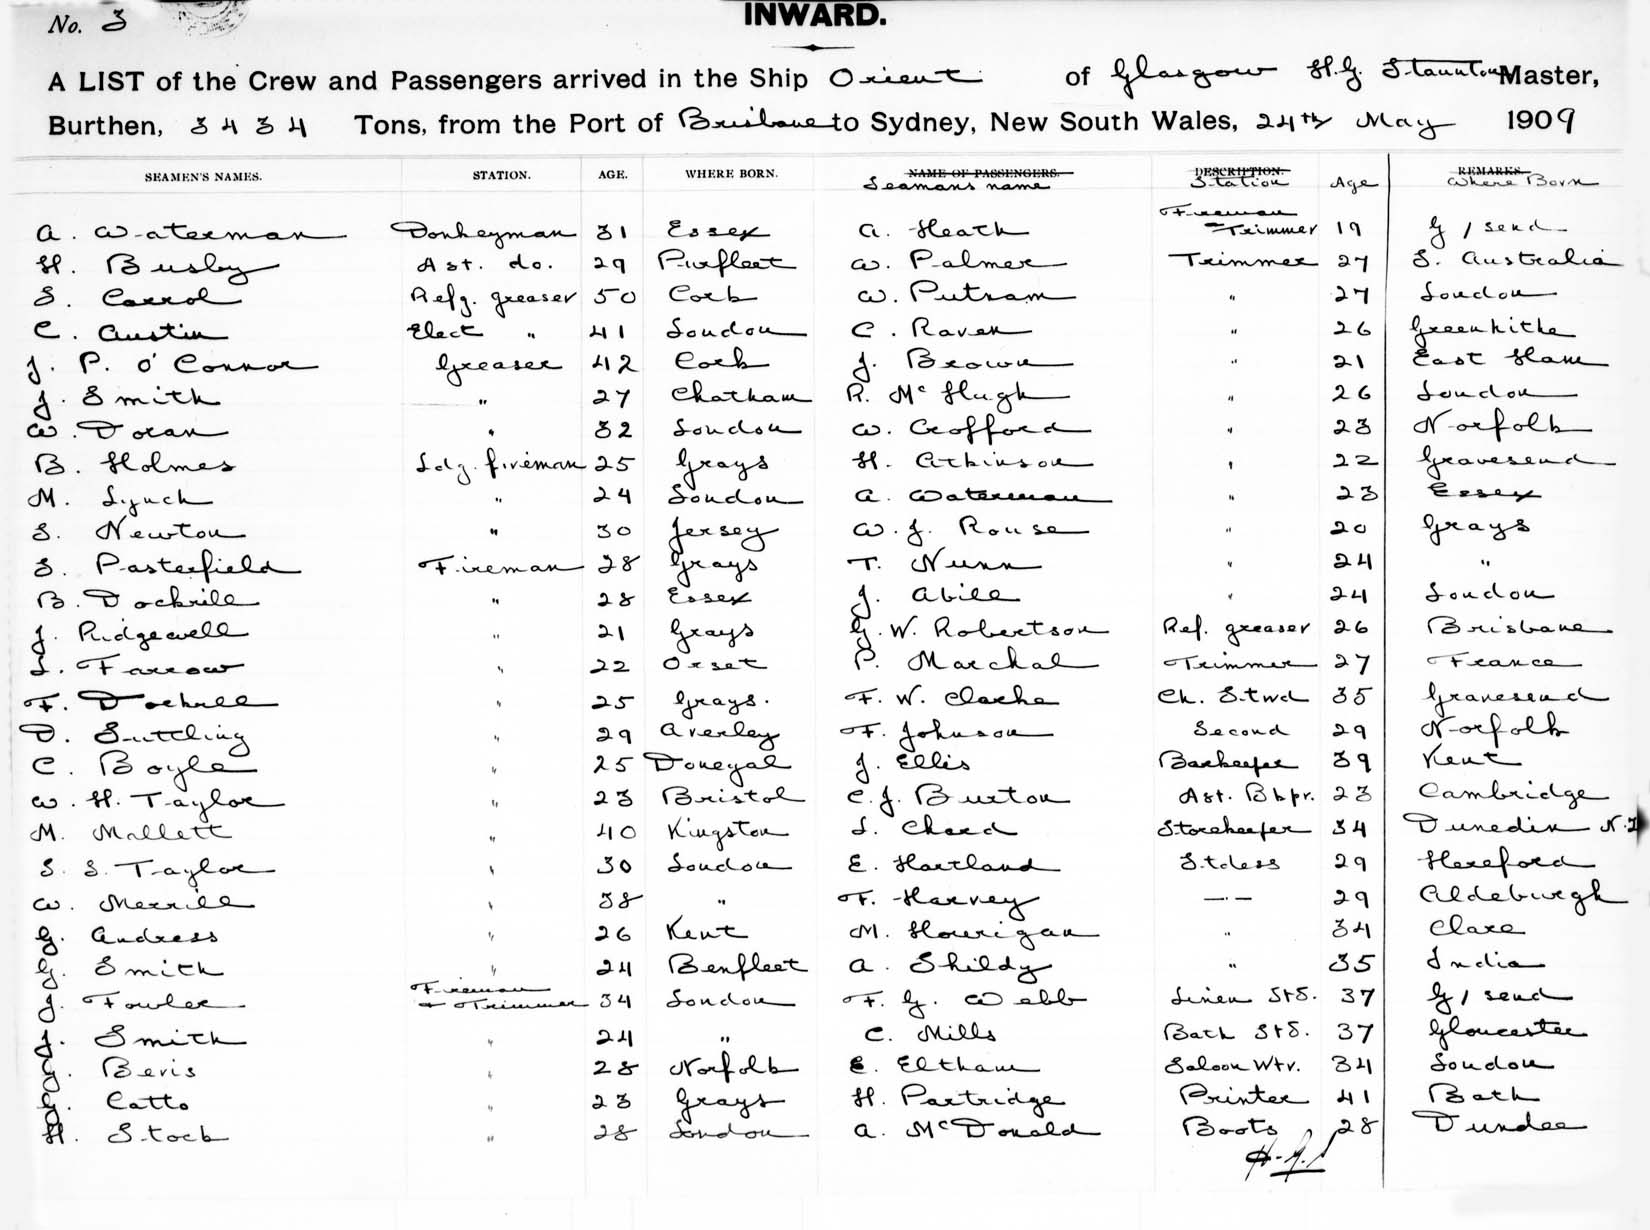 No. 3
INWARD.
A LIST of the Crew and Passengers arrived in the Ship Orient of Glasgow H.G. Staunton Master,
Burthen, 3434 Tons, from the Port of Brisbane to Sydney, New South Wales, 24th May 1909
SEAMEN'S NAMES. STATION. AGE. WHERE BORN. NAME OF PASSENGERS. DESCRIPTION. REMARKS.
Seamans name Station Age Where Born
A. Waterman Donkeyman 31 Essex A. Heath Fireman & Trimmer 19 G/send
H. Busby Ast. do. 29 Purfleet W. Palmer Trimmer 27 S. Australia
S. Carrol Refg. greaser 50 Cork W. Putnam " 27 London
C. Austin Elect " 41 London C. Raven " 26 Greenhithe
J. P. O'Connor Greaser 42 Cork J. Brown " 21 East Ham
J. Smith " 27 Chatham R. McHugh " 26 London
W. Doran " 32 London W. Crofford " 23 Norfolk
B. Holmes Ldg. fireman 25 Grays H. Atkinson " 22 Gravesend
M. Lynch " 24 London A. Waterman " 23 Essex
S. Newton " 30 Jersey W. J. Rouse " 20 Grays
S. Pasterfield Fireman 28 Grays T. Nunn " 24 "
B. Dockrill " 28 Essex J. Abill " 24 London
J. Ridgewell " 21 Grays G. W. Robertson Ref. greaser 26 Brisbane
L. Farrow " 22 Orset P. Marchal Trimmer 27 France
F. Dockrell " 25 Grays. F. W. Clarke Ch. Stwd 35 Gravesend
D. Suttling " 29 Averley F. Johnson Second 29 Norfolk
C. Boyle " 25 Donegal J. Ellis Barkeeper 39 Kent
W. H. Taylor " 23 Bristol C. J. Burton Ast. Bkpr. 23 Cambridge
M. Mallett " 40 Kingston L. Chard Storekeeper 34 Dunedin N.Z
S. S. Taylor " 30 London E. Hartland Stdess 29 Hereford
W. Merrill " 38 " F. Harvey — — 29 Aldeburgh
G. Andress " 26 Kent M. Hourigan " 34 Clare
G. Smith " 24 Benfleet A. Shildy " 35 India
J. Fowler Fireman & Trimmer 34 London F. G. Webb Linen Std. 37 G/send
J. Smith " 24 " C. Mills Bath Std. 37 Gloucester
G. Beris " 28 Norfolk E. Eltham Saloon Wtr. 34 London
G. Catto " 23 Grays H. Partridge Printer 41 Bath
H. Stock " 28 London A. McDonald Boots 28 Dundee